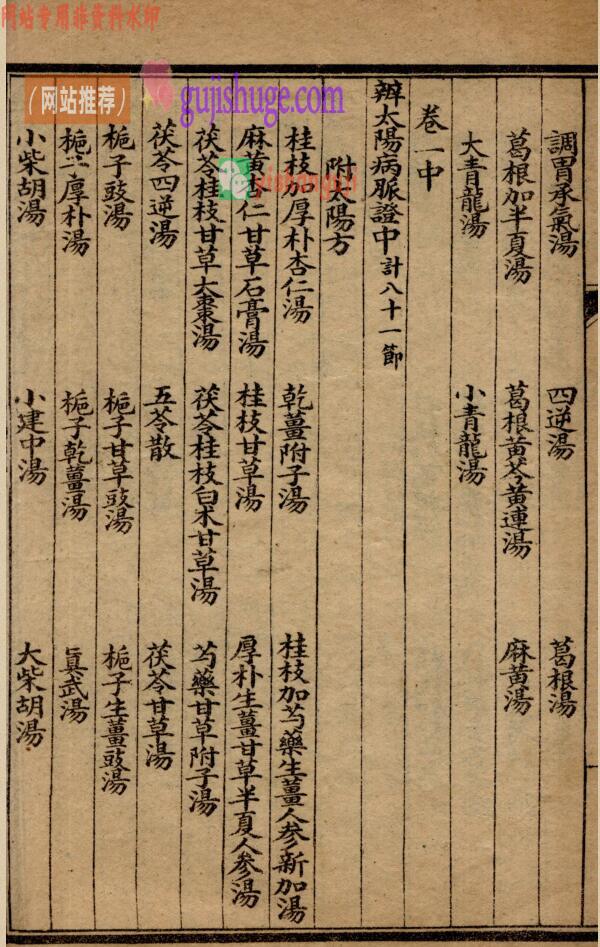 网站专用非资料水印
（网站推荐）
gujishuge.com
調胃承氣湯 四逆湯 葛根湯
葛根加半夏湯 葛根黃芩黃連湯 麻黃湯
大青龍湯 小青龍湯
卷一中
辨太陽病脈證中計八十一節
附太陽方
桂枝加厚朴杏仁湯 乾薑附子湯 桂枝加芍藥生薑人參新加湯
麻黃杏仁甘草石膏湯 桂枝甘草湯 厚朴生薑甘草半夏人參湯
茯苓桂枝甘草大棗湯 茯苓桂枝白朮甘草湯 芍藥甘草附子湯
茯苓四逆湯 五苓散 茯苓甘草湯
梔子豉湯 梔子甘草豉湯 梔子生薑豉湯
梔子厚朴湯 梔子乾薑湯 真武湯
小柴胡湯 小建中湯 大柴胡湯